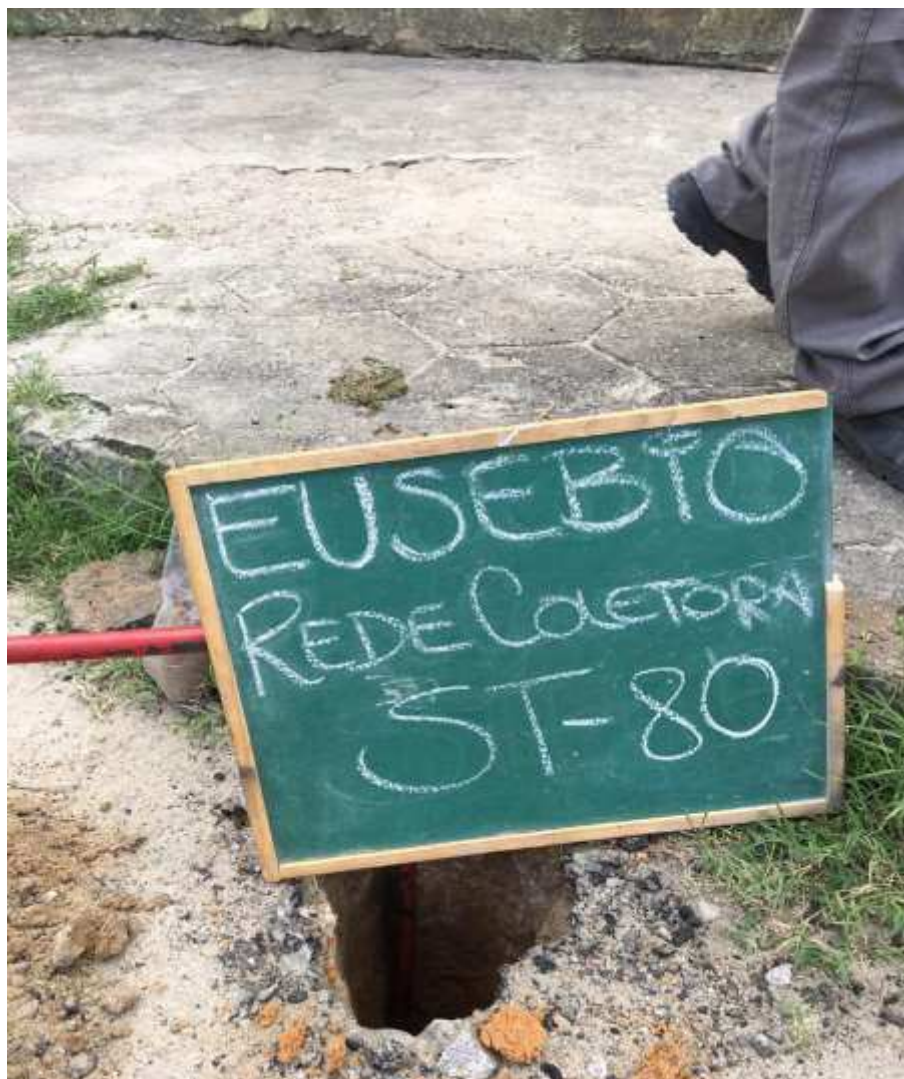 EUSÉBIO
REDE COLETORA
ST-80